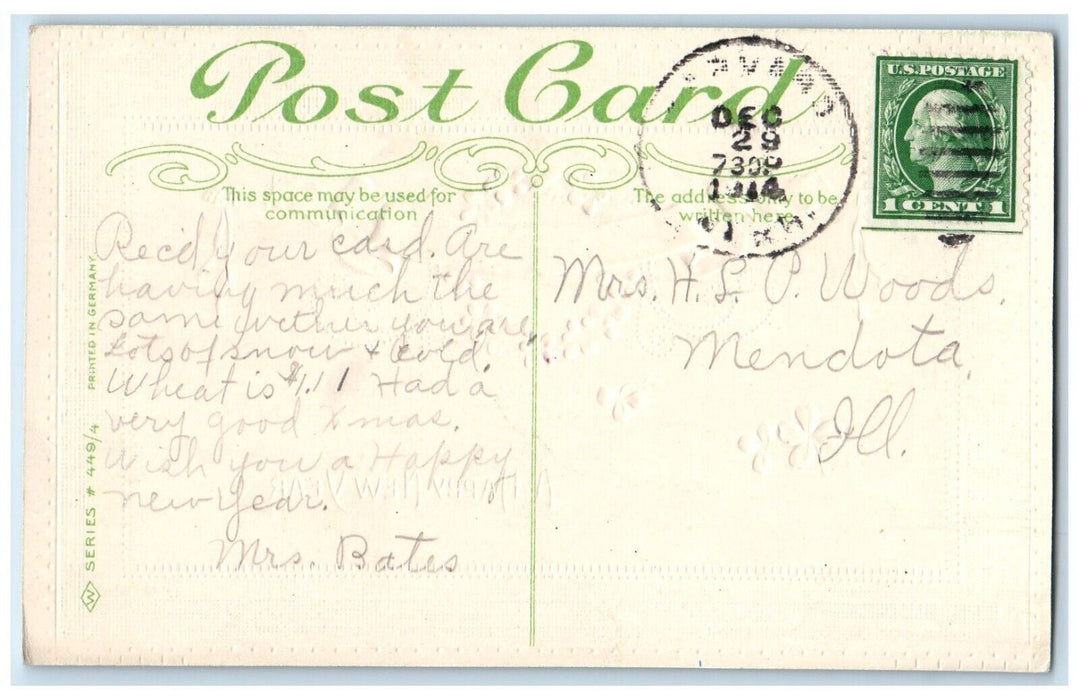 Post Card
DEC
29
730P
1914
U.S. POSTAGE
1 CENT 1
This space may be used for
communication
The address only to be
written here
Rec'd your card. Are
having much the
same wether you are
Lots of snow & cold.
Wheat is $1.11 Had a
very good Xmas.
Wish you a Happy
New Year.
Mrs. Bates
Mrs. H. L. P. Woods,
Mendota,
Ill.
A Happy New Year
PRINTED IN GERMANY
SERIES # 449/4
W